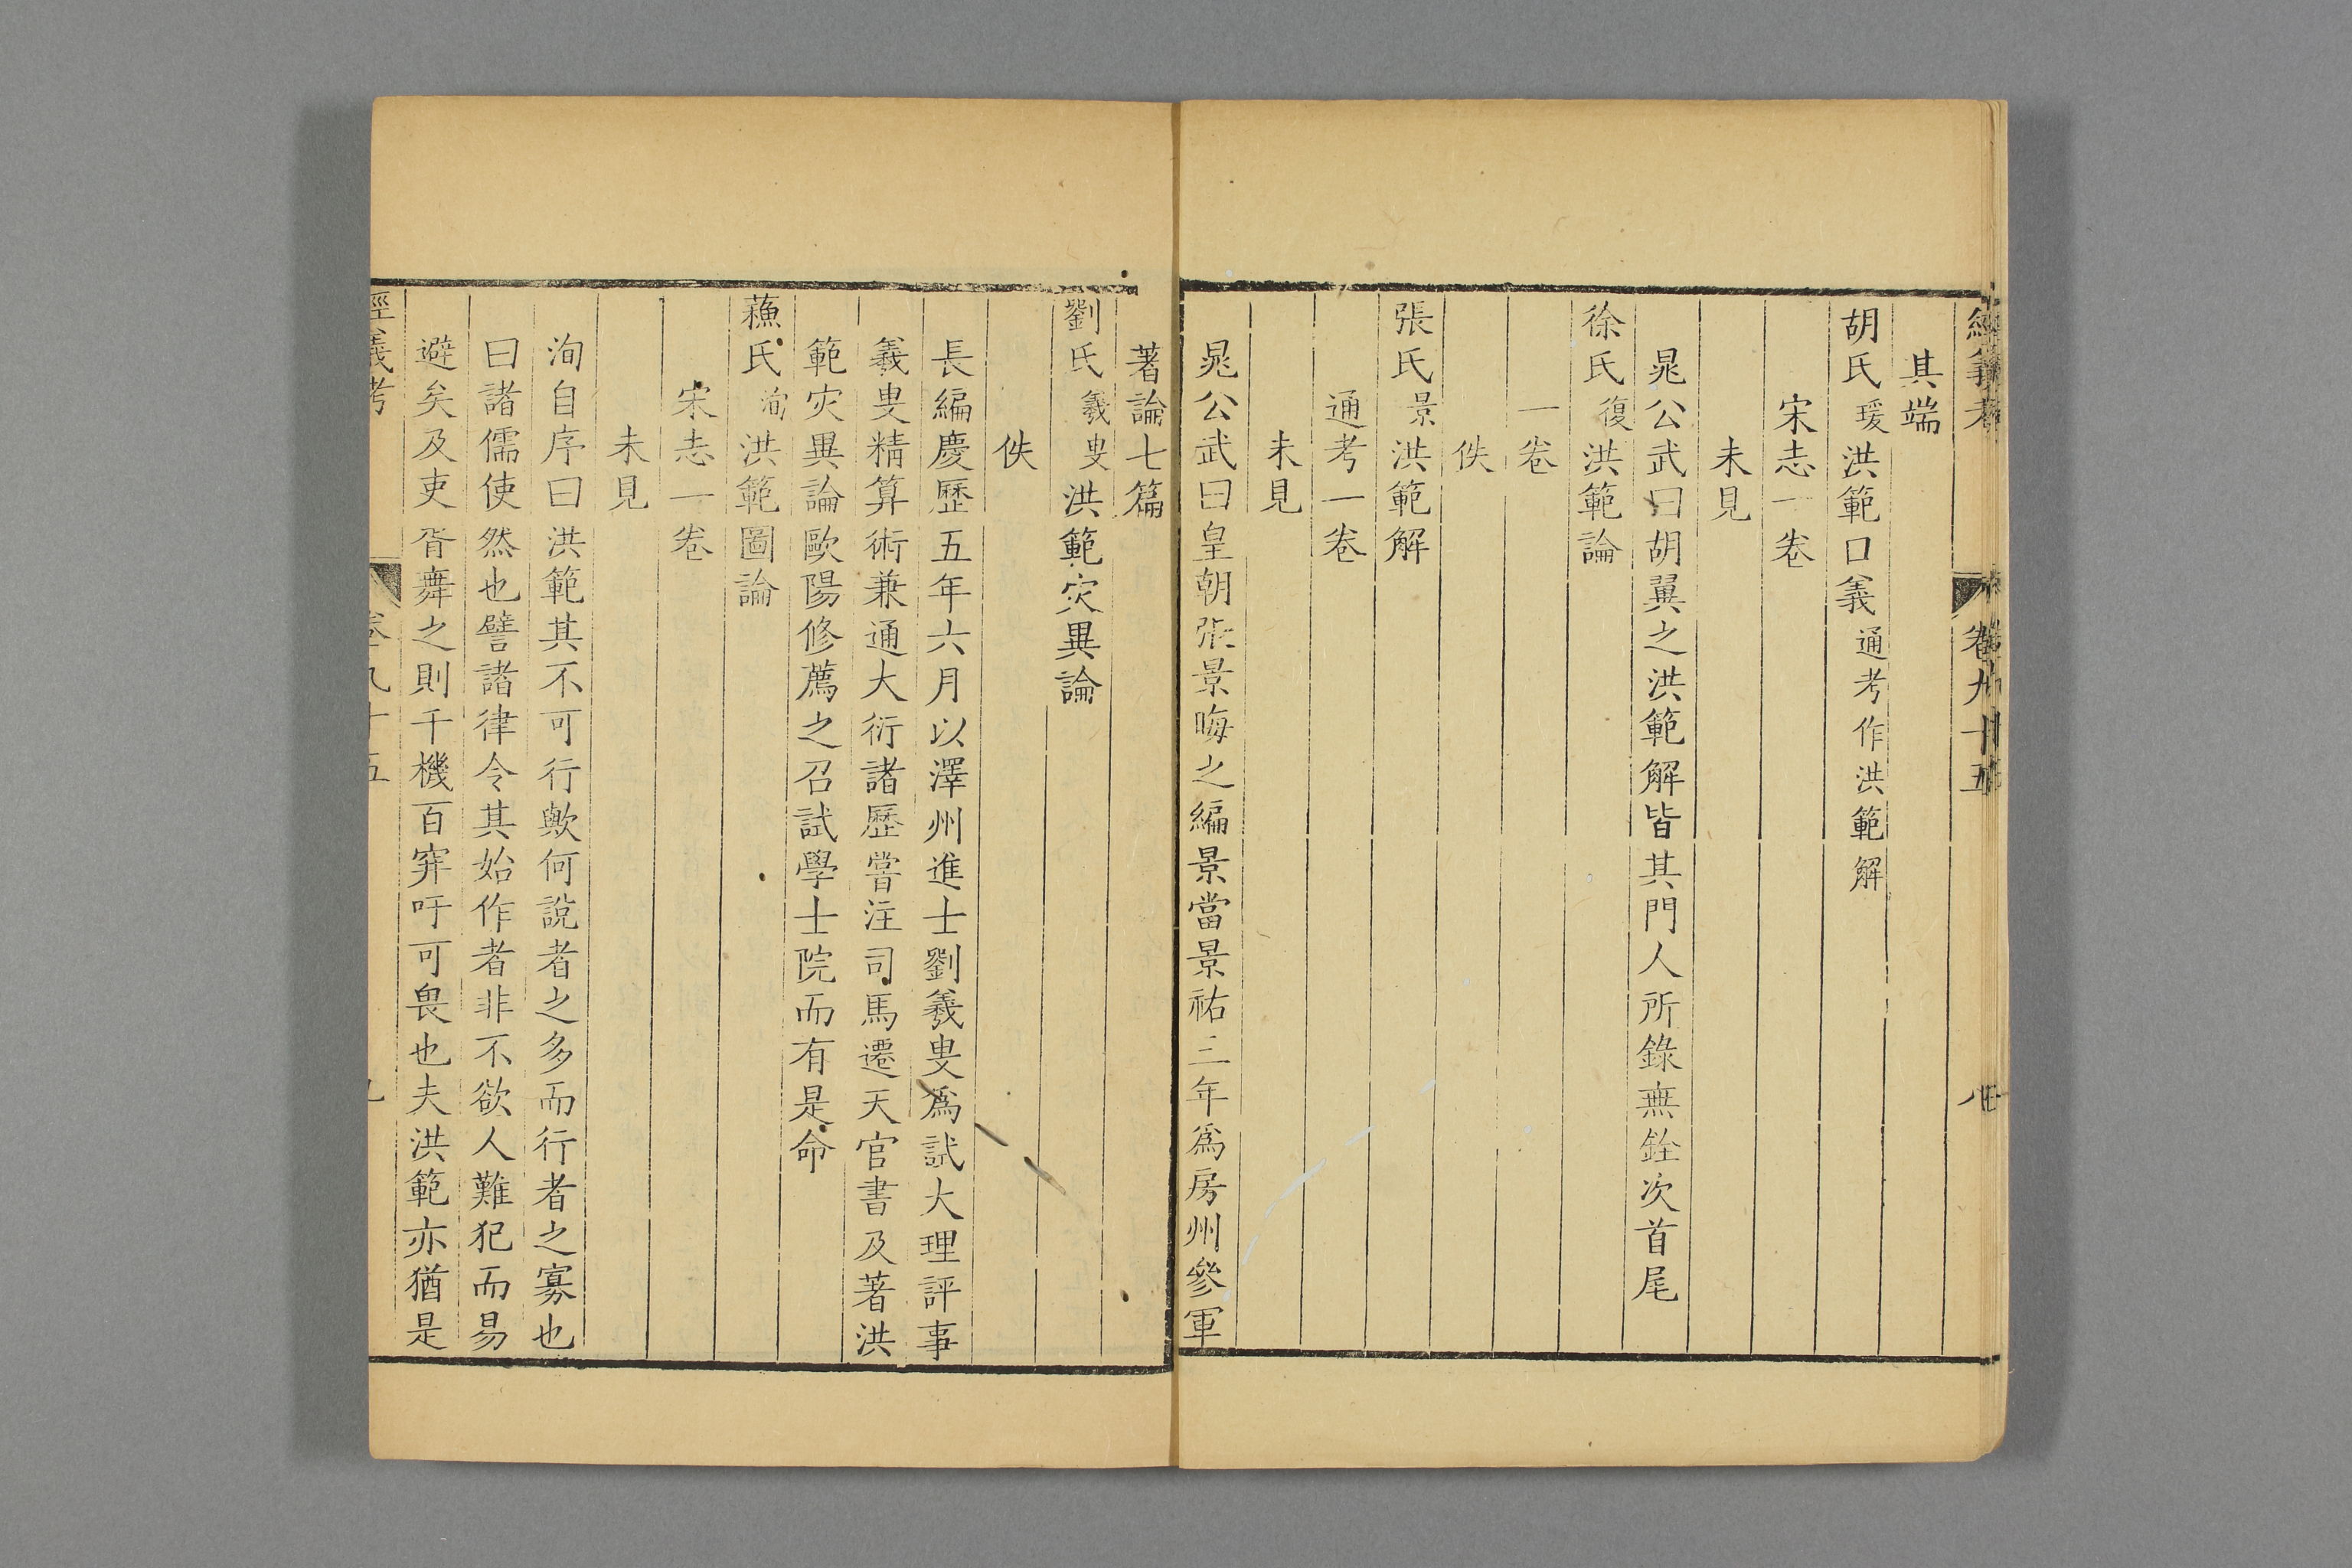 其端
胡氏瑗洪範口義通考作洪範解
宋志一卷
未見
晁公武曰胡翼之洪範解皆其門人所錄無銓次首尾
徐氏復洪範論
一卷
佚
張氏景洪範解
通考一卷
未見
晁公武曰皇朝張景晦之編景當景祐三年爲房州參軍
著論七篇
劉氏羲叟洪範灾異論
佚
長編慶歷五年六月以澤州進士劉羲叟爲試大理評事
羲叟精算術兼通大衍諸歷嘗注司馬遷天官書及著洪
範灾異論歐陽修薦之召試學士院而有是命
蘓氏洵洪範圖論
宋志一卷
未見
洵自序曰洪範其不可行歟何說者之多而行者之寡也
曰諸儒使然也譬諸律令其始作者非不欲人難犯而易
避矣及吏胥舞之則千機百穽吁可畏也夫洪範亦猶是
經義考 卷九十五 九